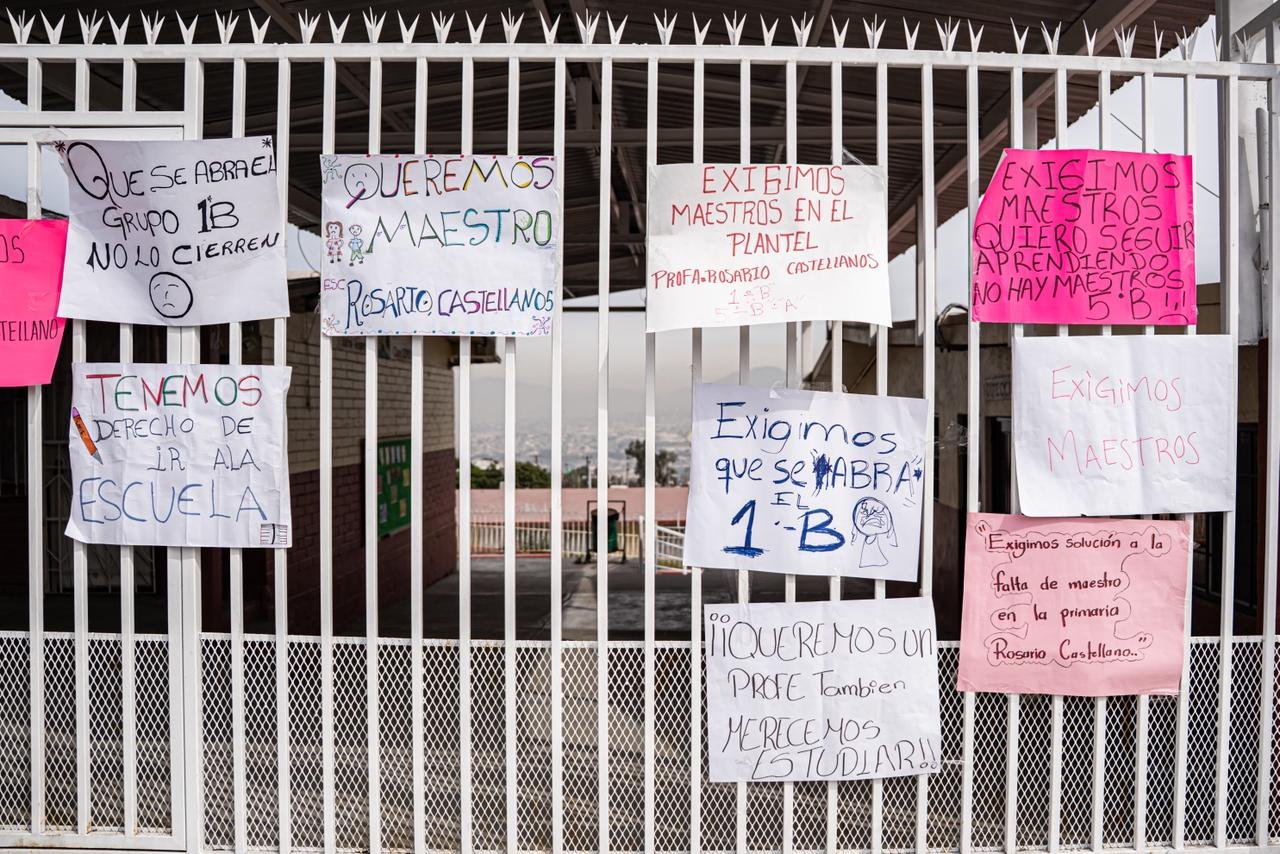 OS
TELLANO
QUE SE ABRA EL
GRUPO 1°B
NO LO CIERREN
TENEMOS
DERECHO DE
IR ALA
ESCUELA
QUEREMOS
MAESTRO
ESC
ROSARIO, CASTELLANOS
EXIGIMOS
MAESTROS EN EL
PLANTEL
PROFA. ROSARIO CASTELLANOS
1-°B
5-°B-"A"
Exigimos
que se ABRA
EL
1°-B
¡¡QUEREMOS UN
PROFE Tambien
MERECEMOS
ESTUDIAR!!
EXIGIMOS
MAESTROS
QUIERO SEGUIR
APRENDIENDO
NO HAY MAESTROS
5°B !!
EXIGIMOS
MAESTROS
"Exigimos solución a la
falta de maestro
en la primaria
Rosario Castellano.."